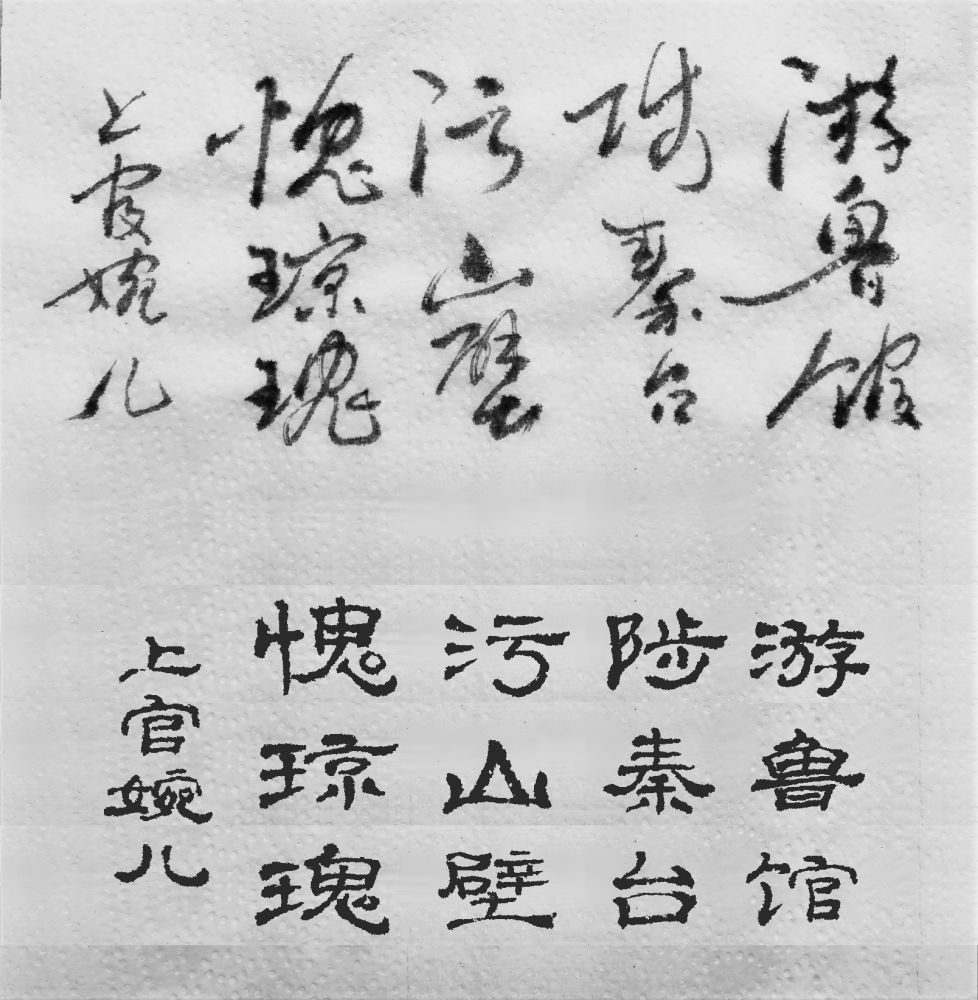 游鲁馆
陟秦台
污山壁
愧琼瑰
上官婉儿
游鲁馆
陟秦台
污山壁
愧琼瑰
上官婉儿